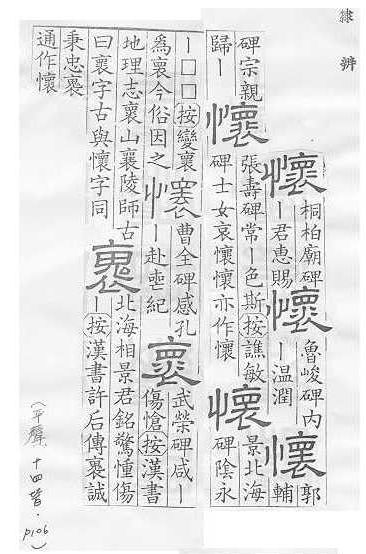 隸辨
懷桐柏廟碑
—君惠賜
懷魯峻碑内
—温潤
懷郭
輔
碑宗親
歸—
懷張壽碑常—色斯按譙敏
碑士女哀懷懷亦作懷
懷景北海
碑陰永
—□□按變褱
爲襄今俗因之
懷曹全碑感孔
—赴喪紀
褱武榮碑咸—
傷愴按漢書
地理志襄山襄陵師古
曰襄字古與懷字同
褱北海相景君銘驚慟傷
—按漢書許后傳褱誠
秉忠褱
通作懷
(平聲. 十四皆. P106)